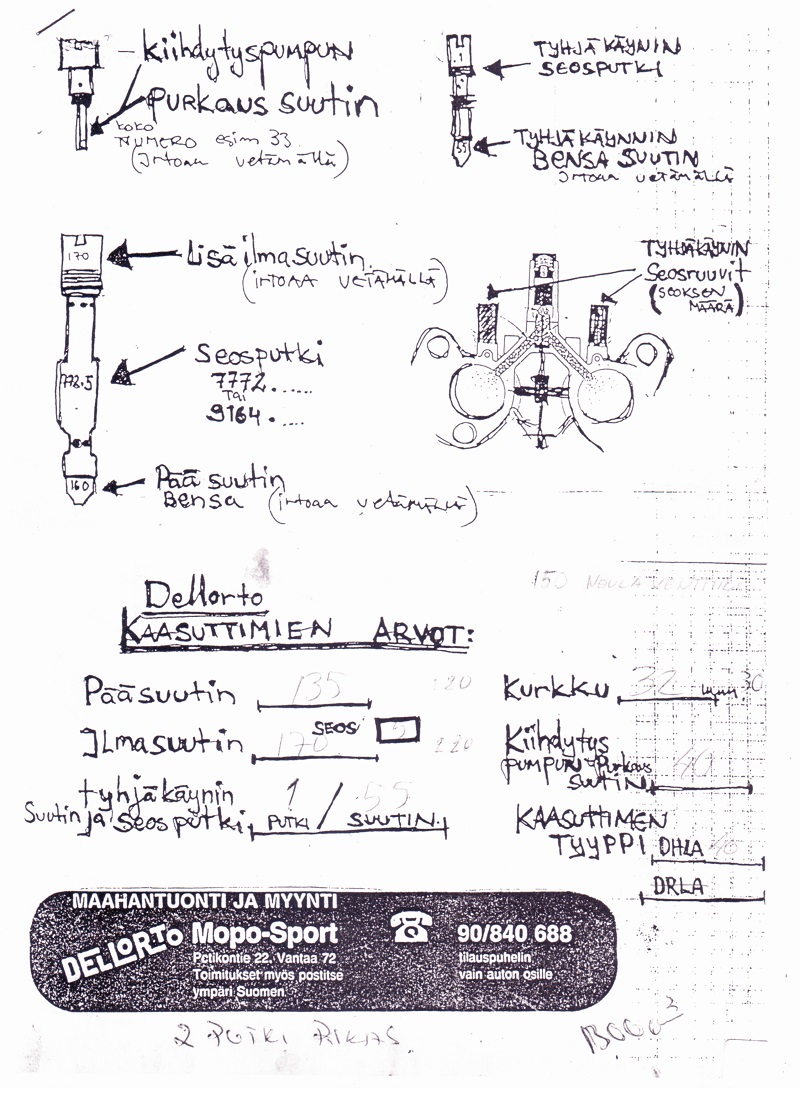 Kiihdytyspumpun
Purkaus suutin
koko
NUMERO esim 33
(Irtoaa vetämällä)
1
TYHJÄKÄYNIN
SEOSPUTKI
55
TYHJÄKÄYNNIN
BENSA SUUTIN
Irtoaa vetämällä
170
Lisäilmasuutin
(irtoaa vetämällä)
TYHJÄKÄYNIN
Seosruuvit
(SEOKSEN
MÄÄRÄ)
772.5
Seosputki
7772......
Tai
9164.....
160
Pääsuutin
Bensa (irtoaa vetämällä)
150
Dellorto
KAASUTTIMIEN ARVOT:
Pääsuutin 135 120
Kurkku 32 mm. 30
SEOS 5
Ilmasuutin 170 220
Kiihdytys
pumpun-Purkaus
suutin 40
tyhjäkäynin
Suutin ja seosputki
1 / 55
PUTKI SUUTIN
KAASUTTIMEN
TYYPPI DHLA 40
DRLA
MAAHANTUONTI JA MYYNTI
DELLORTO Mopo-Sport
Petikontie 22, Vantaa 72
Toimitukset myös postitse
ympäri Suomen
90/840 688
tilauspuhelin
vain auton osille
2 PUTKI RIKAS
1300cm³